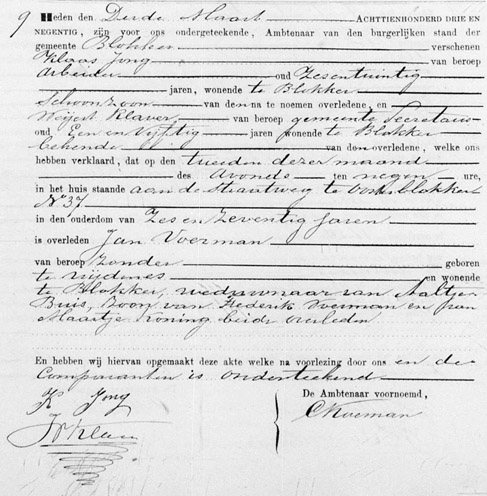 9 Heden den Derde Maart ACHTTIENHONDERD DRIE EN
NEGENTIG, zijn voor ons ondergeteekende, Ambtenaar van den burgerlijken stand der
gemeente Blokker verschenen
Klaas Jong van beroep
Arbeider oud Zesentwintig
jaren, wonende te Blokker
Schoonzoon van den na te noemen overledene, en
Weijert Klaver, van beroep gemeente Secretaris
oud Een en Vijftig jaren wonende te Blokker
bekende van den overledene, welke ons
hebben verklaard, dat op den tweeden dezer maand
des Avonds ten negen ure,
in het huis staande aan de Straatweg te Oosterblokker
No 37
in den ouderdom van Zes en Zeventig Jaren
is overleden Jan Voerman
van beroep Zonder geboren
te Wijdenes en wonende
te Blokker, weduwnaar van Aaltje
Buis, Zoon van Frederik Voerman en van
Maartje Koning beide overleden
En hebben wij hiervan opgemaakt deze akte welke na voorlezing door ons en de
Comparanten is onderteekend
K Jong
De Ambtenaar voornoemd,
CKoeman
Klaver